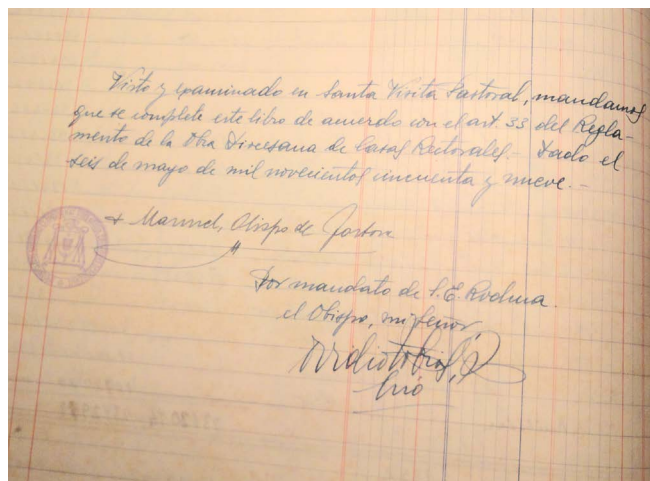 Visto y examinado en Santa Visita Pastoral, mandamos
que se complete este libro de acuerdo con el art. 33 del Regla-
mento de la Obra Diocesana de Casas Rectorales.- Dado el
seis de mayo de mil novecientos cincuenta y nueve.-
+ Manuel, Obispo de Tortosa
Por mandato de S. E. Rvdma.
el Obispo, mi señor,
Srio